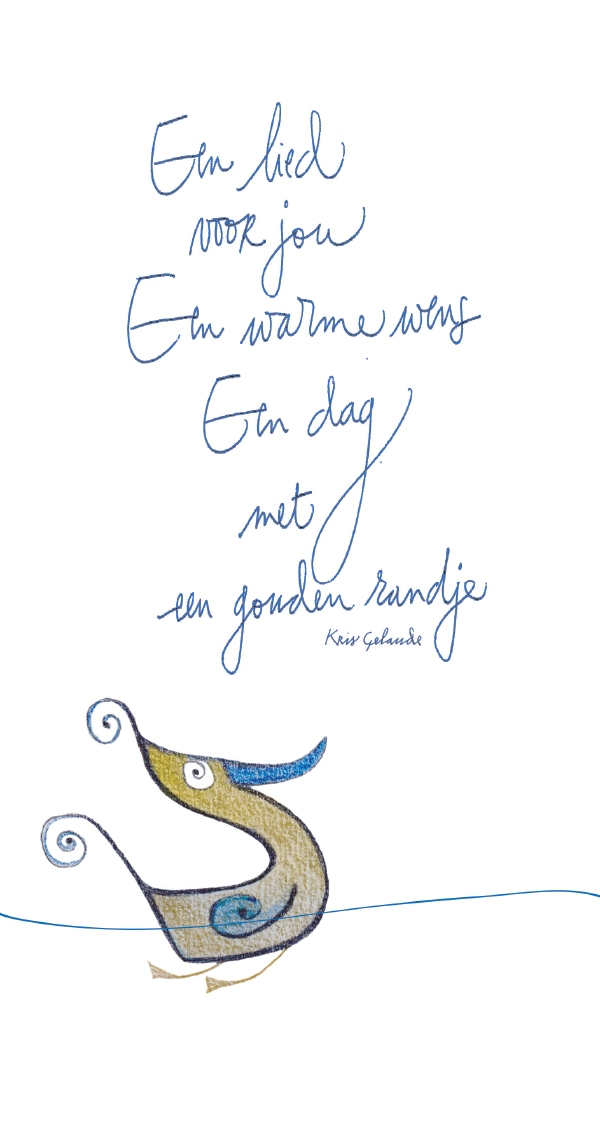 Een lied
voor jou
Een warme wens
Een dag
met
een gouden randje
Kris Gelaude